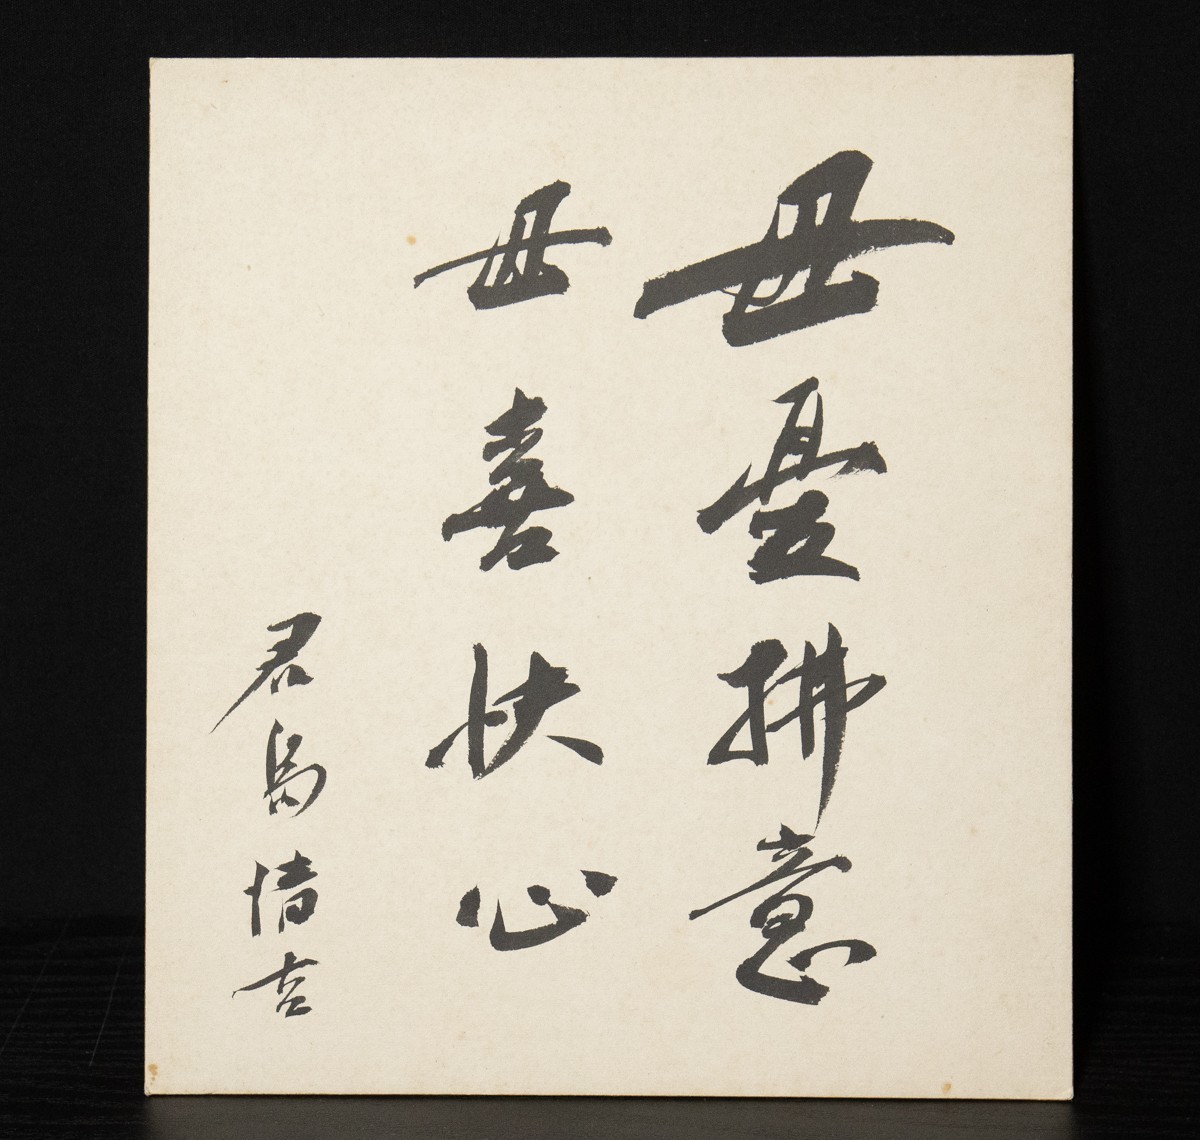 毋憂拂意
毋喜快心
君島清吉